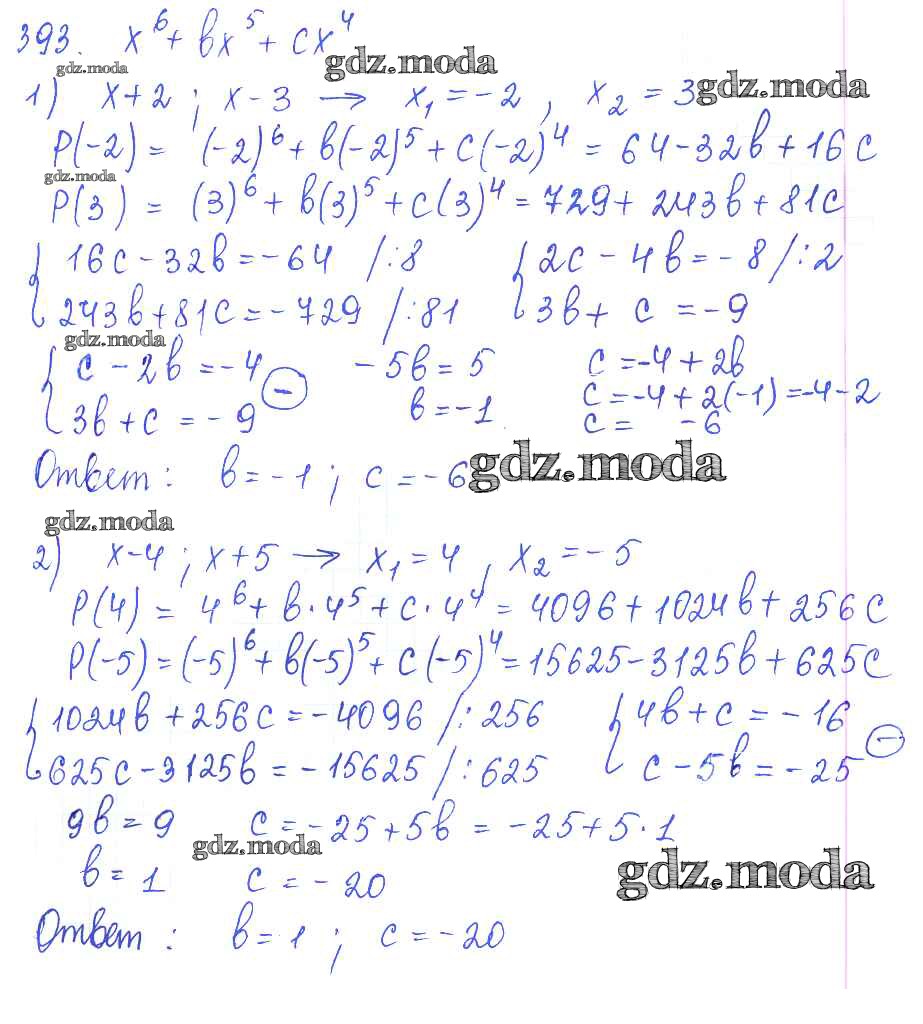 393. x⁶ + bx⁵ + cx⁴
gdz.moda gdz.moda
1) x+2 ; x-3 → x₁ = -2 , x₂ = 3 gdz.moda
P(-2) = (-2)⁶ + b(-2)⁵ + c(-2)⁴ = 64 - 32b + 16c
gdz.moda
P(3) = (3)⁶ + b(3)⁵ + c(3)⁴ = 729 + 243b + 81c
{ 16c - 32b = -64 /:8 { 2c - 4b = -8 /:2
243b + 81c = -729 /:81 3b + c = -9
gdz.moda
{ c - 2b = -4 - -5b = 5 c = -4 + 2b
3b + c = -9 b = -1 c = -4 + 2(-1) = -4 - 2
c = -6
Ответ : b = -1 ; c = -6 gdz.moda
gdz.moda
2) x-4 ; x+5 → x₁ = 4 , x₂ = -5
P(4) = 4⁶ + b·4⁵ + c·4⁴ = 4096 + 1024b + 256c
P(-5) = (-5)⁶ + b(-5)⁵ + c(-5)⁴ = 15625 - 3125b + 625c
{ 1024b + 256c = -4096 /:256 { 4b + c = -16 -
625c - 3125b = -15625 /:625 c - 5b = -25
9b = 9 c = -25 + 5b = -25 + 5·1
gdz.moda gdz.moda
b = 1 c = -20
Ответ : b = 1 ; c = -20